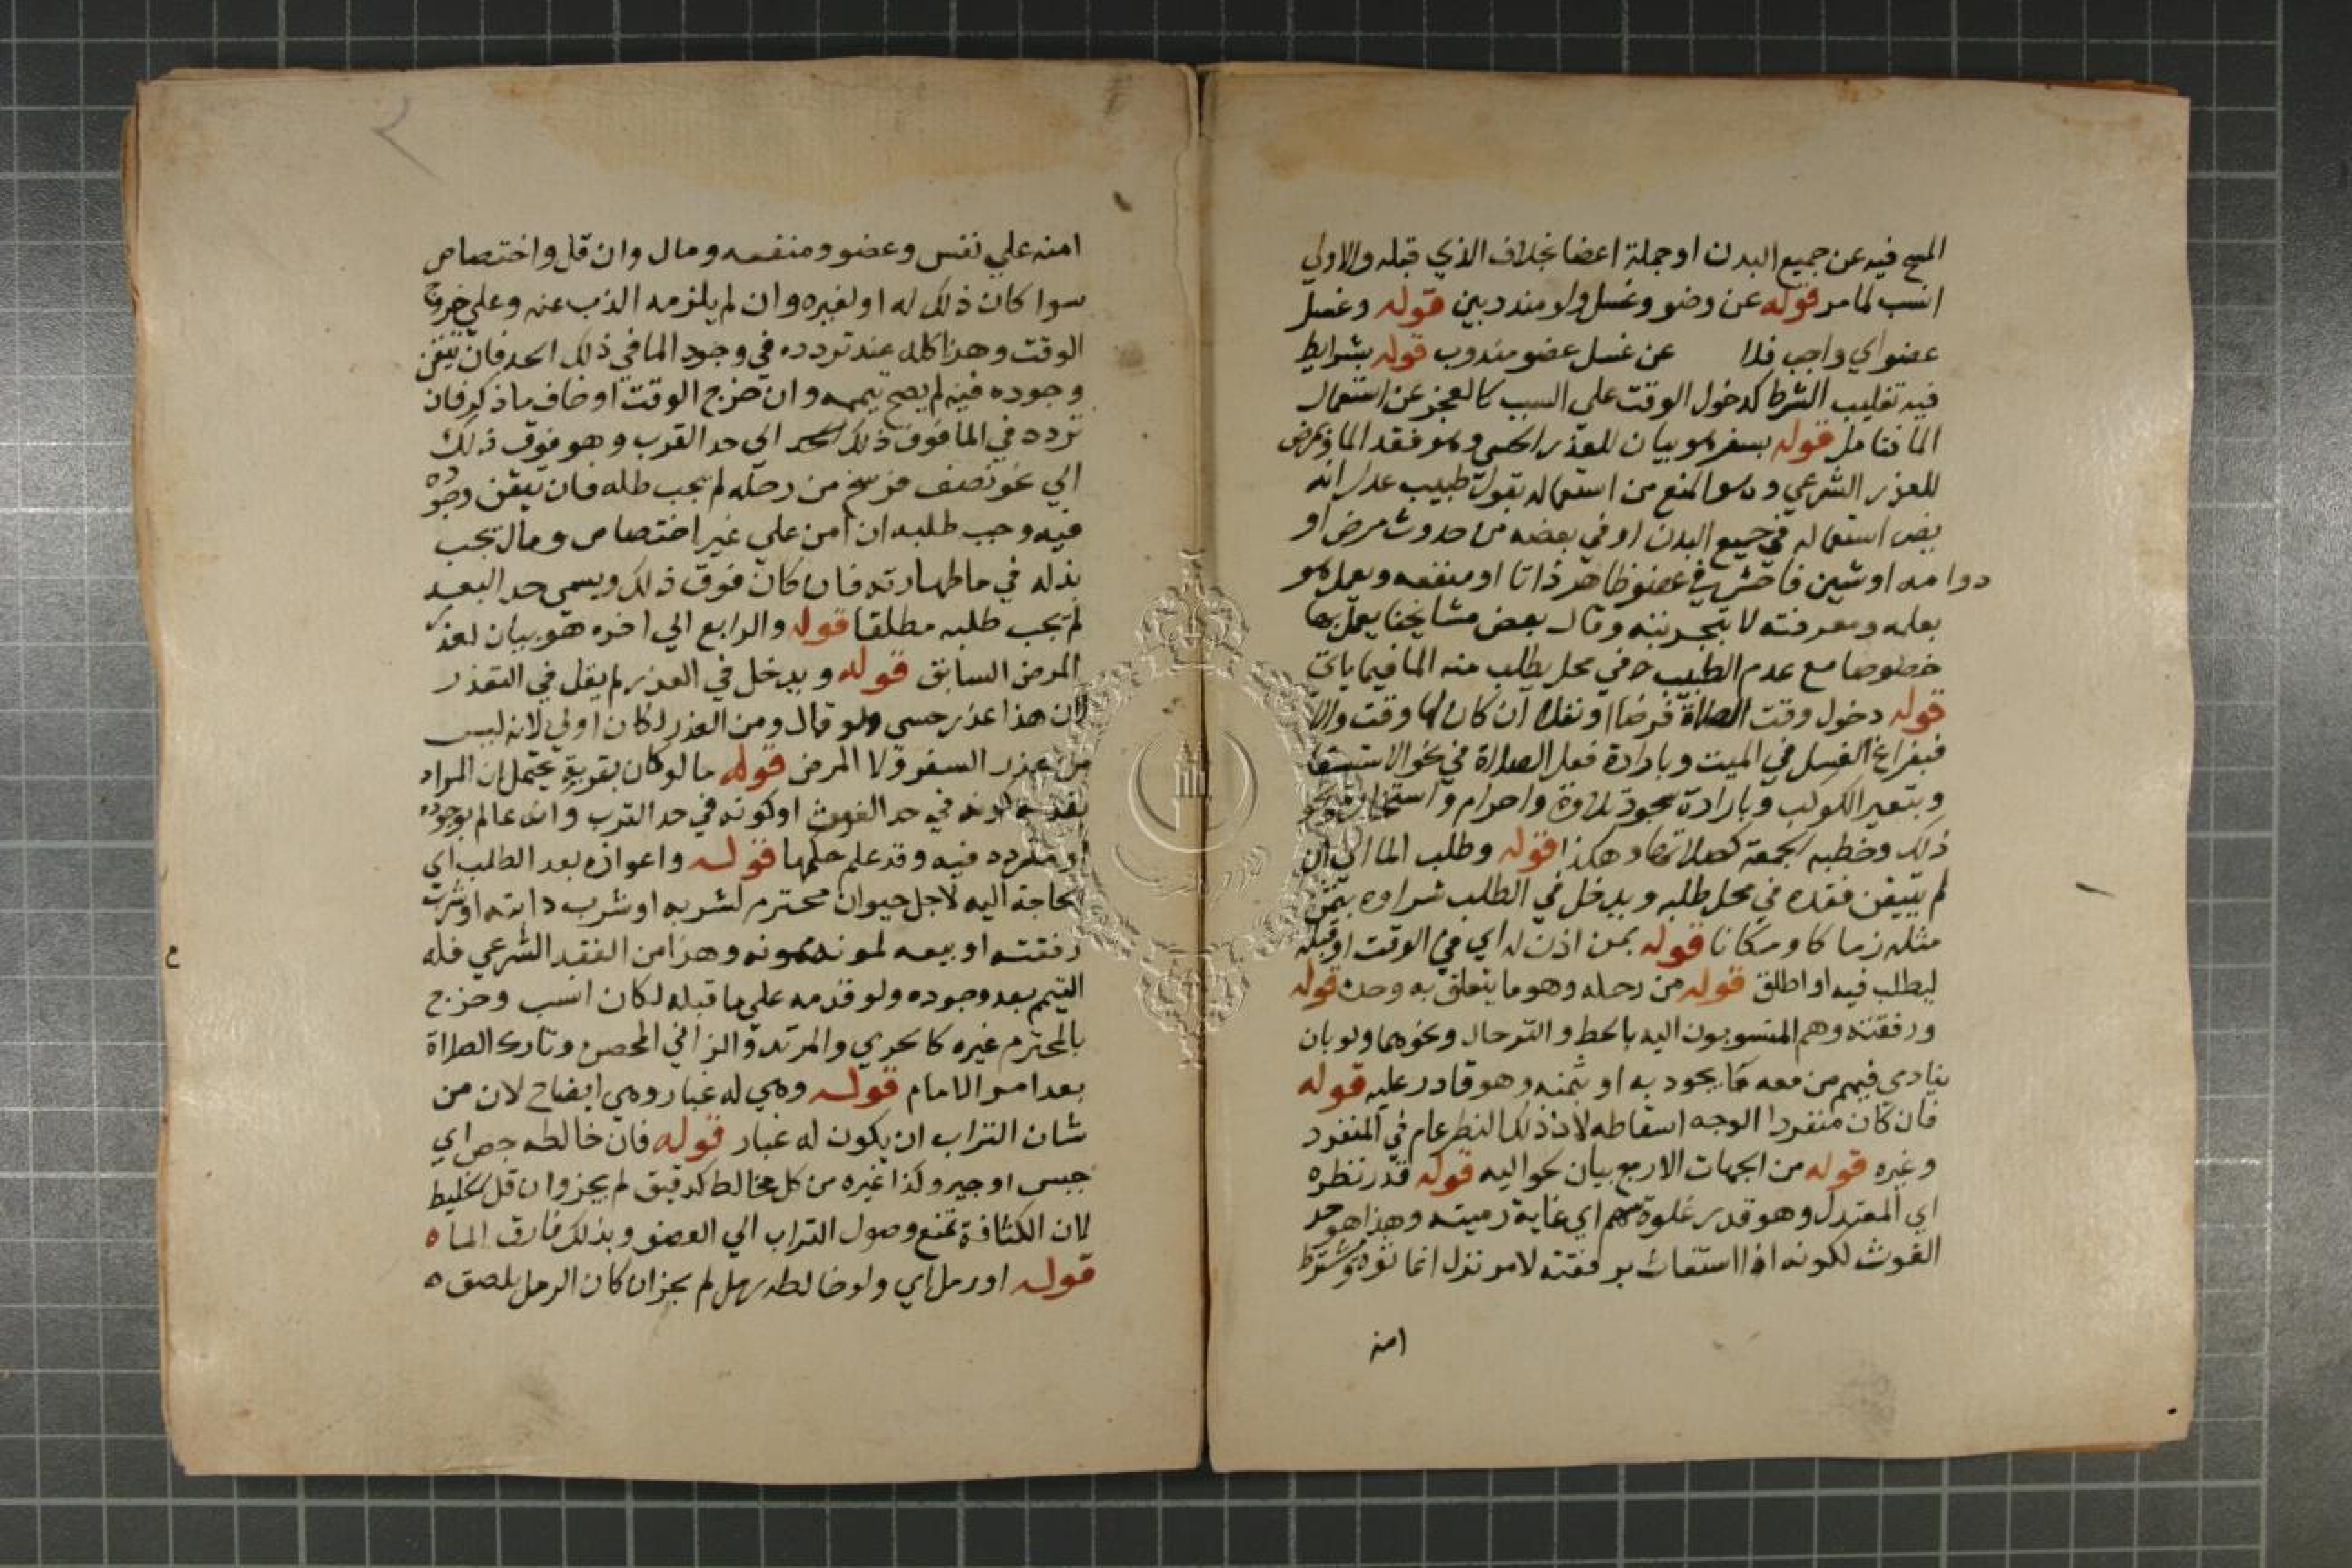 المسح فيه عن جميع البدن او جملة اعضا بخلاف الذي قبله والاولي
انسب لما مر قوله عن وضو وغسل ولو مندوبين قوله وغسل
عضو اي واجب فلا عن غسل عضو مندوب قوله بشرايط
فيه تغليب الشرط كدخول الوقت علي السبب كالعجز عن استعمال
الما فتامل قوله بسفر هو بيان للعذر الحسي وهو فقد الما ومرض
للعذر الشرعي وهو المنع من استعماله بقول طبيب عدل انه
يضر استعماله في جميع البدن او في بعضه من حدوث مرض او
دوامه او شين فاحش في عضو ظاهر ذاتا او منفعه ويعمل هو
بعلمه ومعرفته لا بتجربته وقال بعض مشايخنا يعمل بها
خصوصا مع عدم الطبيب في محل يطلب منه الما فيما ياتي
قوله دخول وقت الصلاة فرضا او نفلا ان كان لها وقت والا
فبفراغ الغسل في الميت وبارادة فعل الصلاة في نحو الاستسقا
وبتغير الكوكب وبارادة سجود تلاوة واحرام واستخارة ونحو
ذلك وخطبه الجمعة كصلاتها وهكذا قوله وطلب الما اي ان
لم يتيقن فقده في محل طلبه ويدخل في الطلب شراوه بثمن
مثله زمانا ومكانا قوله بمن اذن له اي في الوقت او قبله
ليطلب فيه او اطلق قوله من رحله وهو ما يتعلق به وحده قوله
ورفقته وهم المنسوبون اليه بالحط والترحال ونحوهما ولو بان
ينادي فيهم من معه ما يجود به او بثمنه وهو قادر عليه قوله
فان كان منفردا الوجه اسقاطه لان ذلك النظر عام في المنفرد
وغيره قوله من الجهات الاربع بيان لحواليه قوله قدر نظره
اي المعتدل وهو قدر غلوة سهم اي غاية رميته وهذا هو حد
الغوث لكونه اذا استغاث برفقته لامر نزل اغاثوه ويشترط
امنه
امنه علي نفس وعضو ومنفعه ومال وان قل واختصاص
سوا كان ذلك له او لغيره وان لم يلزمه الذب عنه وعلي خروج
الوقت وهذا كله عند تردده في وجود الما في ذلك الحد فان تيقن
وجوده فيه لم يصح تيممه وان خرج الوقت او خاف ما ذكر فان
تردد في الما فوق ذلك الي حد القرب وهو فوق ذلك
الي نحو نصف فرسخ من رحله لم يجب طلبه فان تيقن وجوده
فيه وجب طلبه ان امن علي غير اختصاص ومال يجب
بذله في ما طهارته فان كان فوق ذلك ويسمي حد البعد
لم يجب طلبه مطلقا قوله والرابع الي اخره هو بيان لعذر
المرض السابق قوله ويدخل في العذر لم يقل في التعذر
لان هذا عذر حسي ولو قال ومن العذر لكان اولي لانه ليس
من عذر السفر ولا المرض قوله ما لو كان بقربه يحتمل ان المراد
بقربه كونه في حد الغوث او كونه في حد القرب وانه عالم بوجوده
او متردد فيه وقد علم حكمها قوله واعوازه بعد الطلب اي
الحاجة اليه لاجل حيوان محترم لشربه او شرب دابته او شرب
رفقته او بيعه لمونه وهذا من الفقد الشرعي فله
التيمم بعد وجوده ولو قدمه علي ما قبله لكان انسب وخرج
بالمحترم غيره كالحربي والمرتد والزاني المحصن وتارك الصلاة
بعد امر الامام قوله وهي له غبار وهي ايضاح لان من
شان التراب ان يكون له غبار قوله فان خالطه جص اي
جبس او جير وكذا غيره من كل مخالط كدقيق لم يجز وان قل الخليط
لان الكثافة تمنع وصول التراب الي العضو وبذلك فارق الماء
قوله او رمل اي ولو خالطه رمل لم يجز ان كان الرمل يلصق